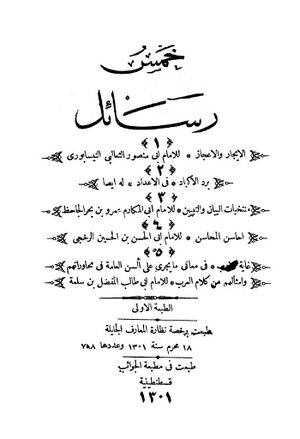 خمس
رسائل
﴿ ١ ﴾
الايجاز والاعجاز * للامام ابى منصور الثعالبى النيسابورى
﴿ ٢ ﴾
برد الأكباد * فى الاعداد * له ايضا
﴿ ٣ ﴾
منتخبات البيان والتبيين * للامام ابى المكارم عمرو بن بحر الجاحظ
﴿ ٤ ﴾
احاسن المحاسن * للامام ابى الحسن بن الحسين الرخجى
﴿ ٥ ﴾
غاية * فى معانى ما يجرى على ألسن العامة فى محاوراتهم
وامثالهم من كلام العرب * للامام ابى طالب المفضل بن سلمة
الطبعة الاولى
طبعت برخصة نظارة المعارف الجليلة
١٨ محرم سنة ١٣٠١ وعددها ٧٨٨
طبعت فى مطبعة الجوائب
قسطنطينية
١٣٠١